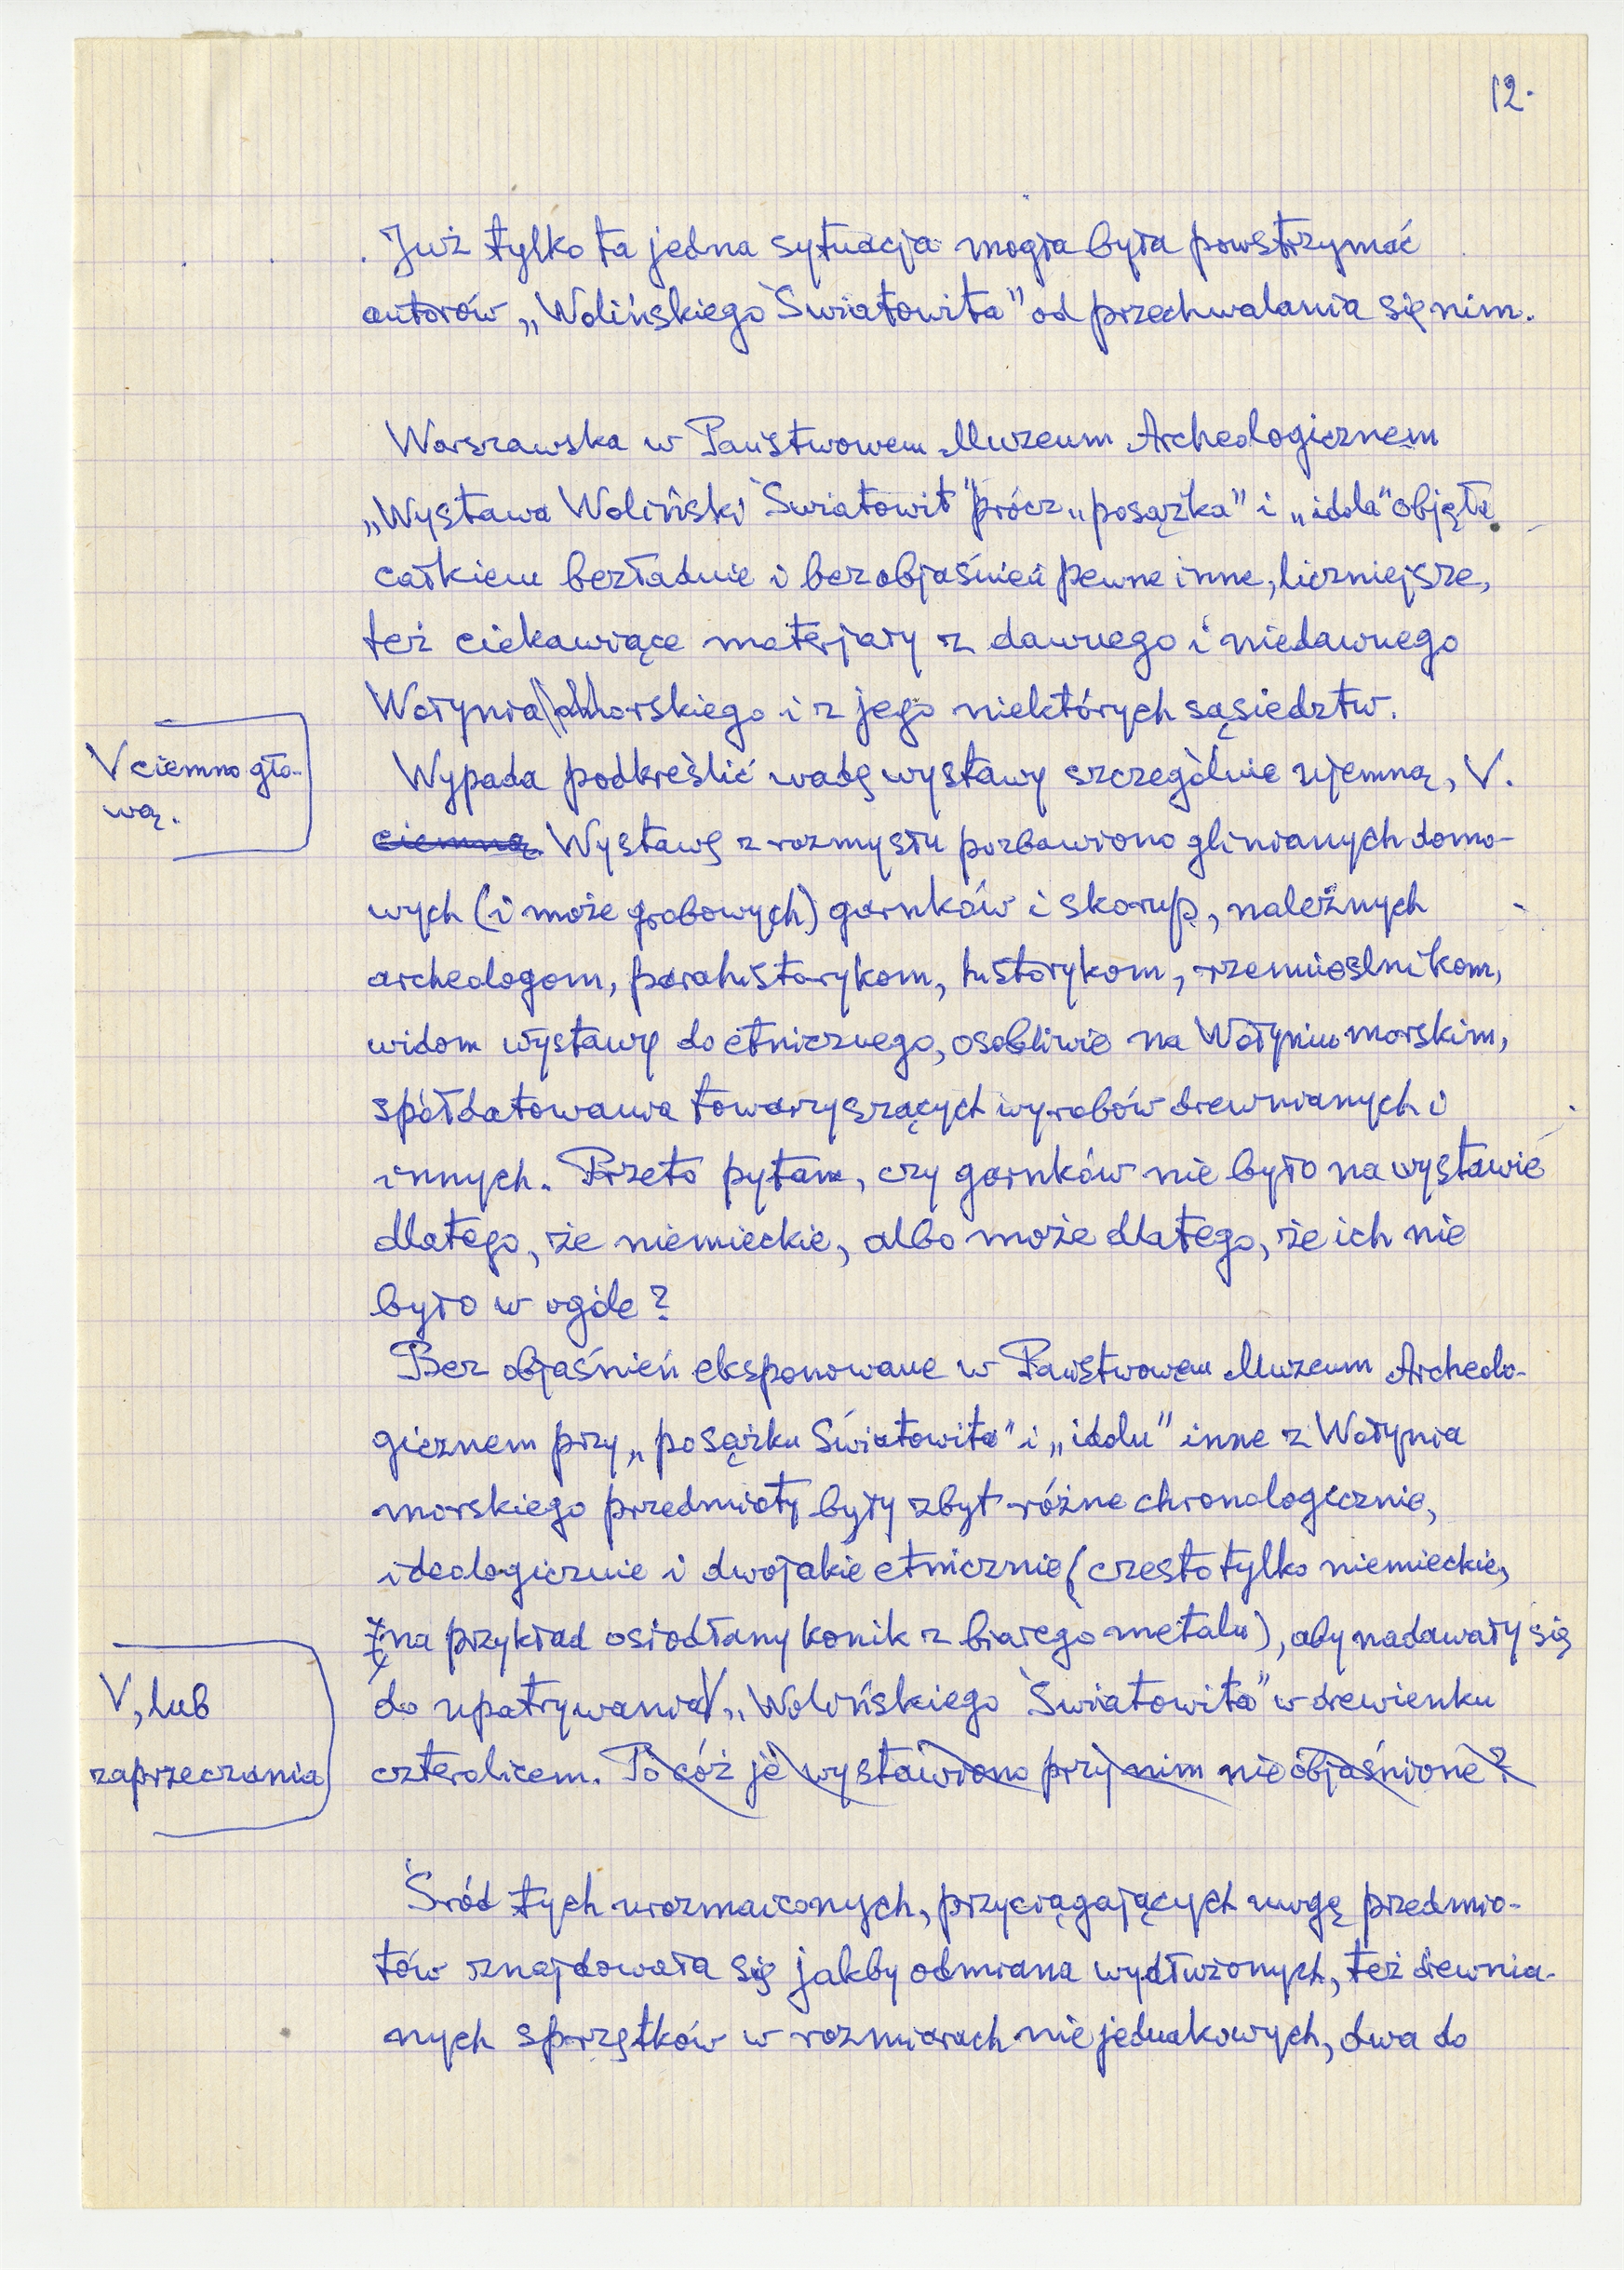 12.
Już tylko ta jedna sytuacja mogła była powstrzymać
autorów „Wolińskiego Światowita" od przechwalania się nim.
Warszawska w Państwowem Muzeum Archeologicznem
„Wystawa Woliński Światowit" prócz „posążka" i „idola" objęła
całkiem bezładnie i bez objaśnień pewne inne, liczniejsze,
też ciekawiące materjały z dawnego i niedawnego
Wołynia morskiego i z jego niektórych sąsiedztw.
V ciemnogło-
wą.
Wypada podkreślić wadę wystawy szczególnie ujemną, V.
ciemną. Wystawę z rozmysłu pozbawiono glinianych domo-
wych (i może grobowych) garnków i skorup, należnych
archeologom, parahistorykom, historykom, rzemieślnikom,
widom wystawy do etnicznego, osobliwie na Wołyniu morskim,
spółdatowania towarzyszących wyrobów drewnianych i
innych. Przeto pytam, czy garnków nie było na wystawie
dlatego, że niemieckie, albo może dlatego, że ich nie
było w ogóle?
Bez objaśnień eksponowane w Państwowem Muzeum Archeolo-
gicznem przy „posążku Światowita" i „idolu" inne z Wołynia
morskiego przedmioty były zbyt różne chronologicznie,
ideologicznie i dwojakie etnicznie (często tylko niemieckie,
na przykład osiodłany konik z białego metalu), aby nadawały się
V, lub
zaprzeczania
do upatrywania V „Wolińskiego Światowita" w drewienku
czterolicem. Po cóż je wystawiono przy nim nie objaśnione?
Śród tych urozmaiconych, przyciągających uwgę przedmio-
tów znajdowała się jakby odmiana wydłużonych, też drewnia-
nych sprzętków w rozmiarach niejednakowych, dwa do